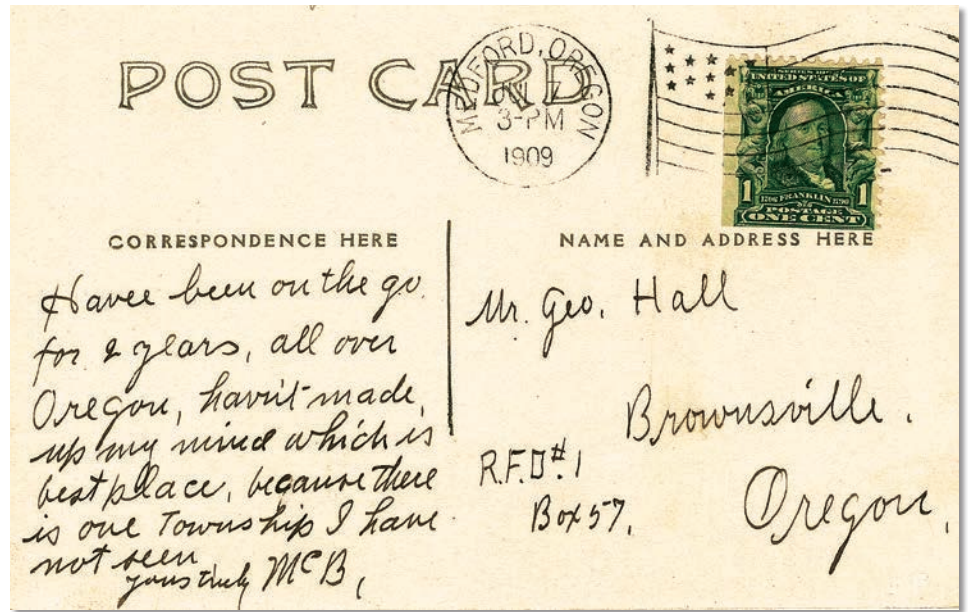 POST CARD
MEDFORD, OREGON
7
3-PM
1909
SERIES 1902
UNITED STATES OF
AMERICA
1 1
1706 FRANKLIN 1790
POSTAGE
ONE CENT
CORRESPONDENCE HERE
Havee been on the go
for 2 years, all over
Oregon, havn't made
up my mind which is
best place, because there
is one Township I have
not seen
yours truly McB,
NAME AND ADDRESS HERE
Mr. Geo. Hall
Brownsville.
R.F.D #1
Box 57,
Oregon,